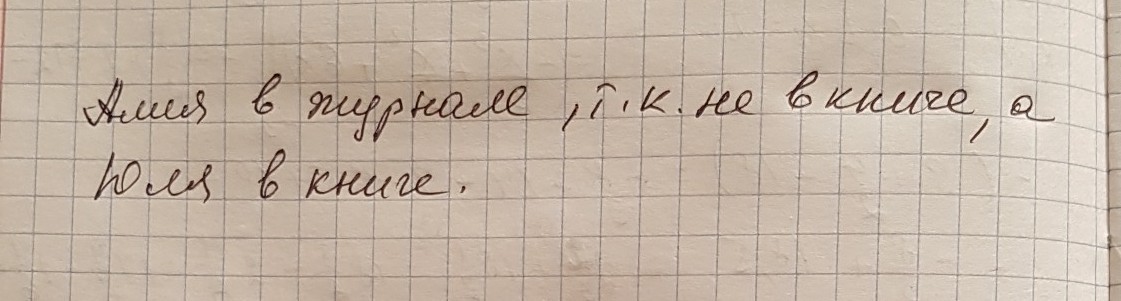 Алия в журнале, т.к. не в книге, а
Юля в книге.